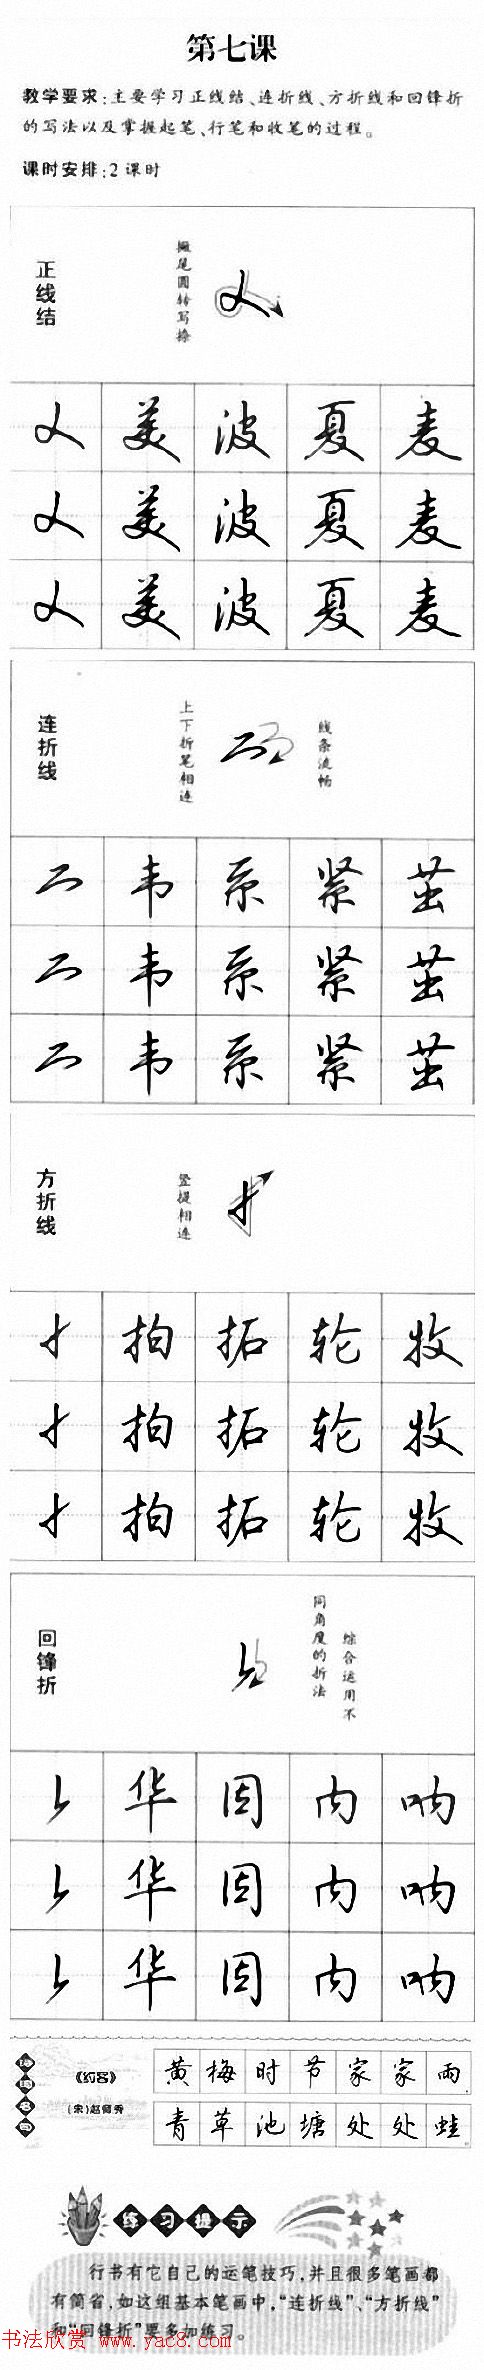 第七课
教学要求:主要学习正线结、连折线、方折线和回锋折
的写法以及掌握起笔、行笔和收笔的过程。
课时安排:2课时
正线结
撇尾圆转写捺
美 波 夏 麦
美 波 夏 麦
美 波 夏 麦
连折线
上下折笔相连
线条流畅
韦 系 紧 茧
韦 系 紧 茧
韦 系 紧 茧
方折线
竖提相连
扌 拍 拓 轮 牧
扌 拍 拓 轮 牧
扌 拍 拓 轮 牧
回锋折
综合运用不
同角度的折法
华 因 内 呐
华 因 内 呐
华 因 内 呐
《约客》
(宋)赵师秀
黄梅时节家家雨
青草池塘处处蛙
练习提示
行书有它自己的运笔技巧,并且很多笔画都
有简省,如这组基本笔画中,“连折线”、“方折线”
和“回锋折”要多加练习。
书法欣赏 www.yac8.com